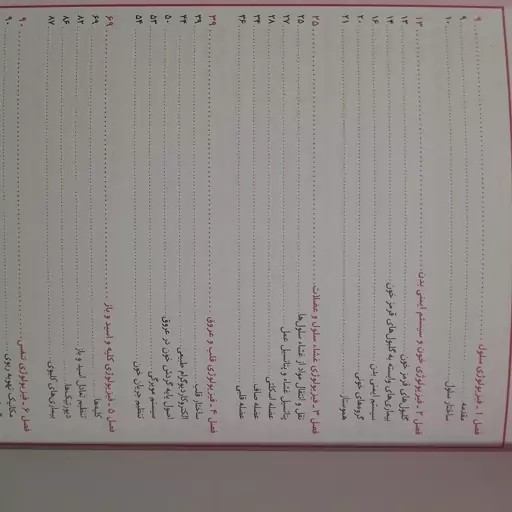 فصل ۱ ـ فیزیولوژی سلول ........ ۹
مقدمه ........ ۹
ساختار سلول ........ ۱۰
فصل ۲ ـ فیزیولوژی خون و سیستم ایمنی بدن ........ ۱۳
گلبول‌های قرمز خون ........ ۱۳
بیماری‌های وابسته به گلبول‌های قرمز خون ........ ۱۴
سیستم ایمنی بدن ........ ۱۶
گروه‌های خونی ........ ۲۰
هموستاز ........ ۲۱
فصل ۳ ـ فیزیولوژی غشاء سلول و عضلات ........ ۲۵
نقل و انتقال مواد از غشاء سلول‌ها ........ ۲۵
پتانسیل غشاء و پتانسیل عمل ........ ۲۷
عضله اسکلتی ........ ۲۸
عضله صاف ........ ۳۴
عضله قلبی ........ ۳۶
فصل ۴ ـ فیزیولوژی قلب و عروق ........ ۳۹
ساختار قلب ........ ۳۹
الکتروکاردیوگرام طبیعی ........ ۴۴
اصول پایه گردش خون در عروق ........ ۵۰
سیستم مویرگی ........ ۵۳
تنظیم جریان خون ........ ۵۴
فصل ۵ ـ فیزیولوژی کلیه و اسید و باز ........ ۶۹
کلیه‌ها ........ ۶۹
تنظیم تعادل اسید و باز ........ ۸۲
دیورتیک‌ها ........ ۸۶
بیماری‌های کلیوی ........ ۸۷
فصل ۶ ـ فیزیولوژی تنفس ........ ۹۰
مکانیک تهویه ریوی ........ ۹۰